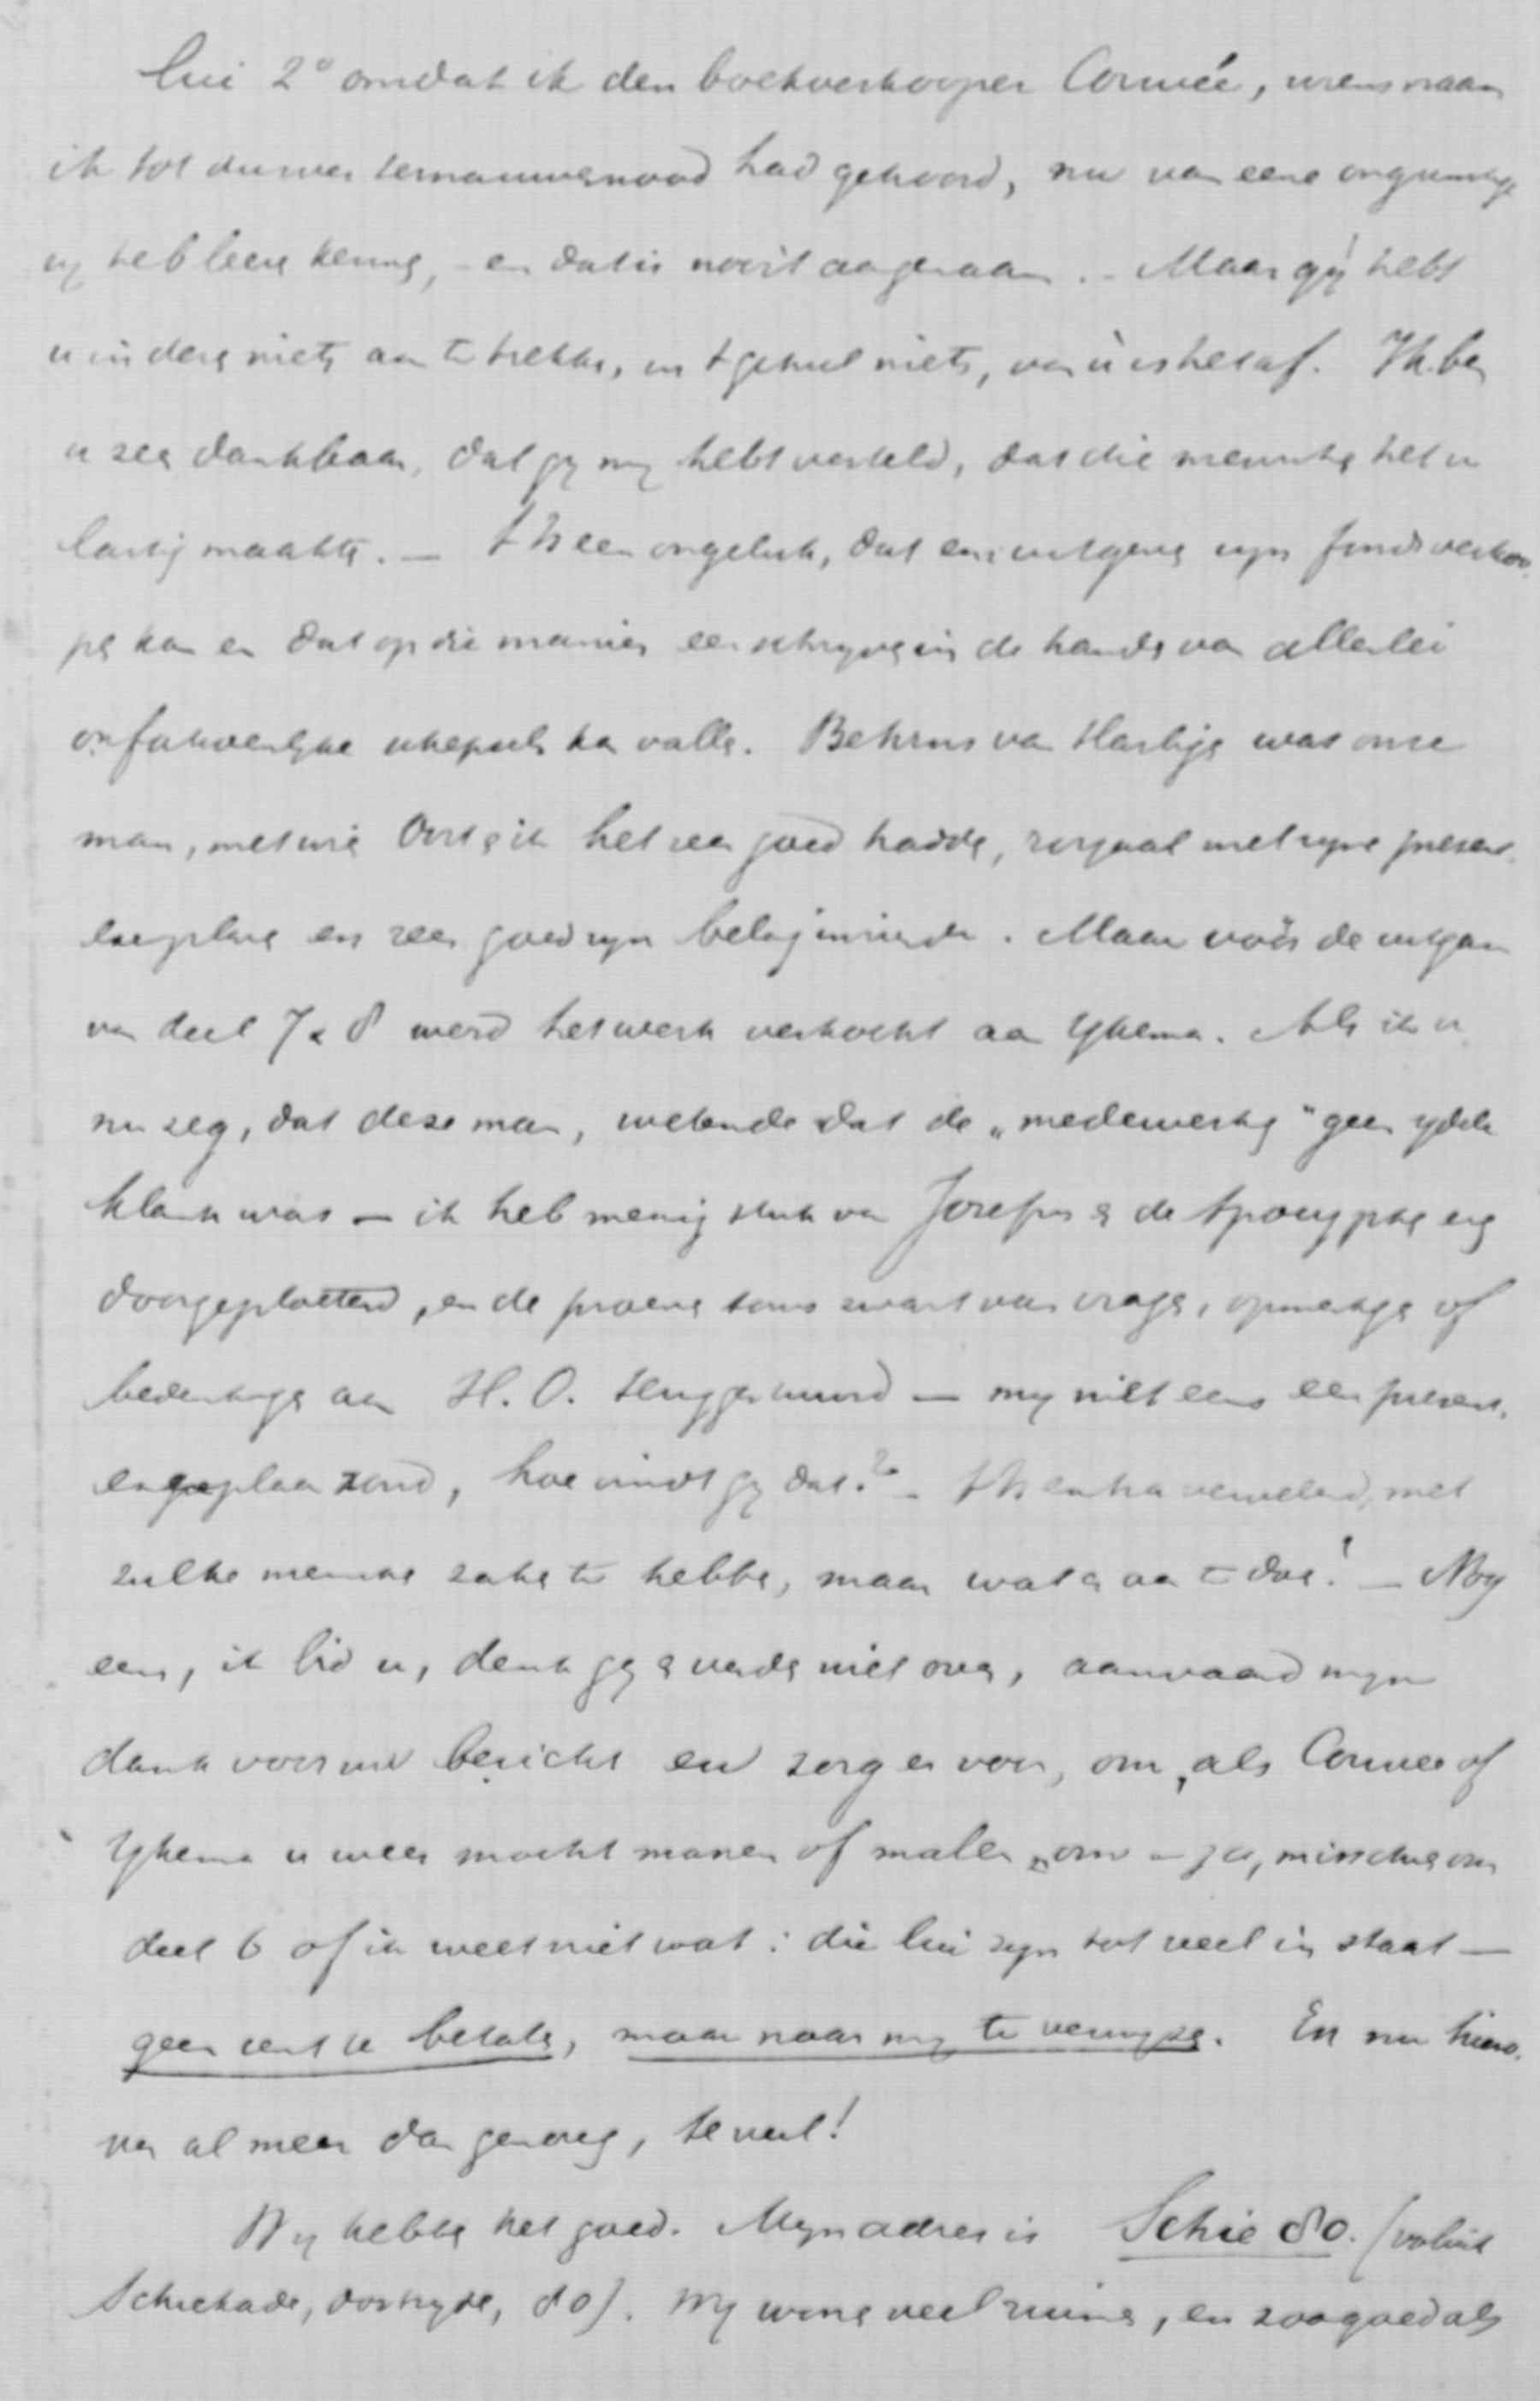 lui 2° omdat ik den boekverkooper Cornée, wiens naam
ik tot dusver ternauwernood had gehoord, nu van eene ongunstige
zij heb leeren kennen, - en dat is nooit aangenaam. - Maar gij hebt
u in deze niets aan te trekken, in 't geheel niets, van ù is het af. Ik ben
u zeer dankbaar, dat gij mij hebt verteld, dat die menschen het u
lastig maakten. — 't Is een ongeluk, dat een uitgever zijn fonds verkoo-
pen kan en dat op die manier een schrijver in de handen van allerlei
onfatsoenlijke schepsels kan vallen. Behrns van Harlingen was onze
man, met wie Oort en ik het zeer goed hadden, royaal met zijne present-
exemplaren en zeer goed zijn belang inziende. Maar vóór de uitgave
van deel 7 & 8 werd het werk verkocht aan Ykema. Als ik u
nu zeg, dat deze man, wetende dat de „medewerking" geen ijdele
klank was — ik heb menig stuk van Josefus en de Apocryphen erg
doorgeploeterd, en de proeven soms zwart van vragen, opmerkingen of
bedenkingen aan H. O. teruggestuurd — mij niet eens een present-
exemplaar zond, hoe vindt gij dat? - 't Is extra vervelend, met
zulke menschen zaken te hebben, maar wat er aan te doen! — Nog
eens, ik bid u, denk gij er verder niet over, aanvaard mijn
dank voor uw bericht en zorg er voor, om, als Cornée of
Ykema u weer mocht manen of malen om - ja, misschien om
deel 6 of ik weet niet wat: die lui zijn tot veel in staat —
geen cent te betalen, maar naar mij te verwijzen. En nu hiero-
ver al meer dan genoeg, te veel!
Wij hebben het goed. Mijn adres is Schie 80. (voluit
Schiekade, oostzijde, 80). Wij wonen veel ruimer, en zoo goed als